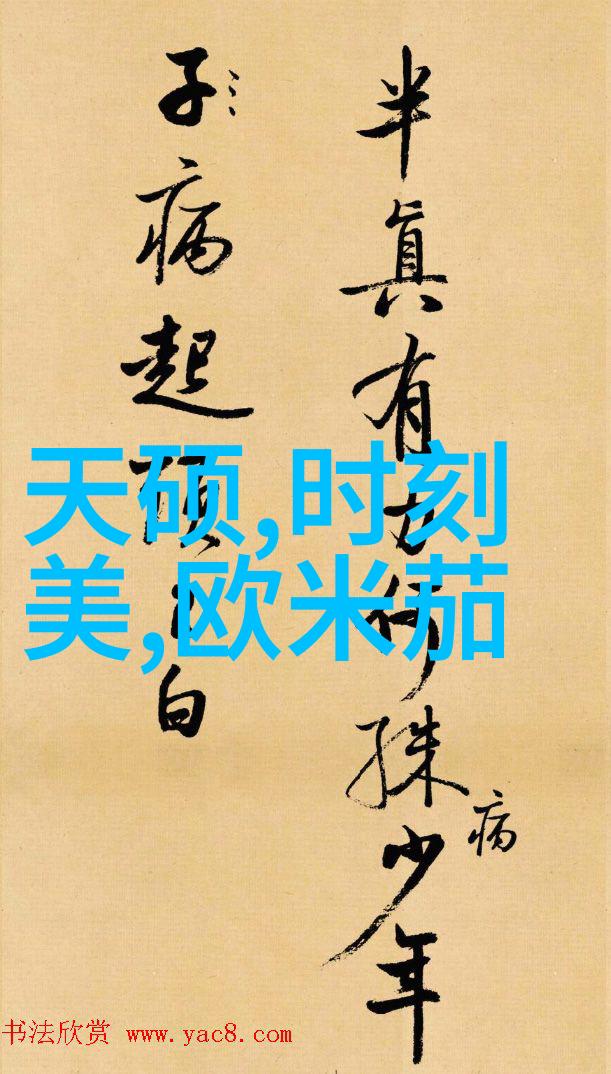 半真有力何殊少年
病
子病起頭已白
天硕,时刻
美,欧米茄
书法欣赏 www.yac8.com